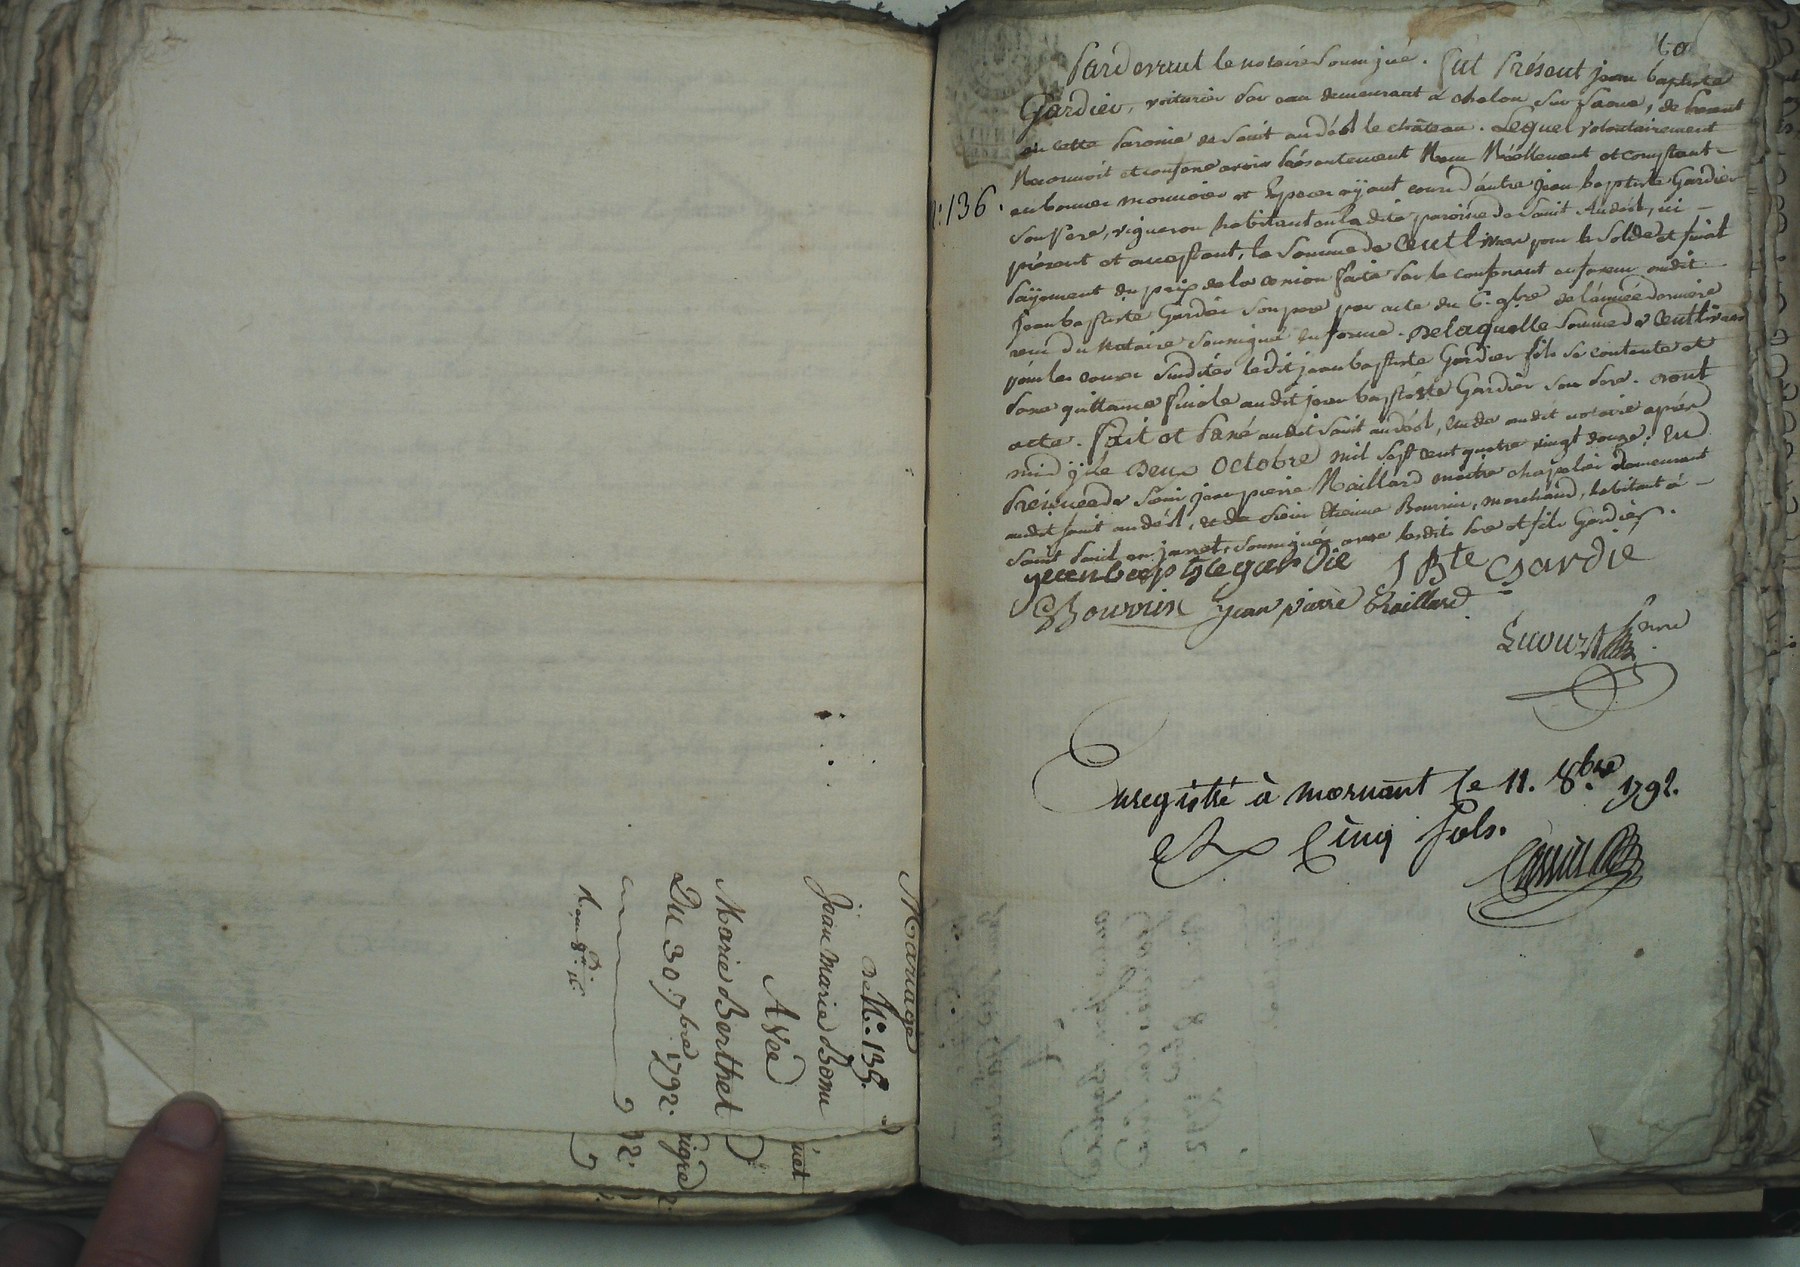 Mariage
de N.° 135.
Jean Marie Bonu
Avec
Marie Berthet
Du 30. 7bre 1792.
60
Pardevant le notaire soussigné. fut Présent jean baptiste
Gardier, voiturier sur eau demeurant a chalon sur saone, de présent
en cette paroisse de saint andéol le château. Lequel volontairement
Reconnoit et confesse avoir présentement Reçu Réellement et comptant
N.° 136.
en bonnes monnoies et Espèces ayant cours d'autre jean baptiste Gardier
son Père, vigneron habitant en la dite paroisse de saint Andéol, ici
présent et acceptant, la somme de Cent livres pour le solde et final
payement du prix de la cession faite par le confessant en faveur audit
jean baptiste Gardier son pere par acte du 6. 9bre de l'année derniere
reçu du Notaire soussigné en forme. De laquelle somme de Centlivres
pour les causes susdites ledit jean baptiste Gardier fils se contente et
passe quittance finale audit jean baptiste Gardier son père. Dont
acte. fait et passé audit saint andéol, Etude audit notaire après
midy Le Deux Octobre mil sept cent quatre vingt douze. En
présence de sieur jean pierre Raillard maitre chapelier demeurant
audit saint andéol, et de sieur Etienne Bourrin, marchand, habitant à
saint paul en jarret, soussignés avec lesdits père et fils Gardier.
jean baptiste gardie J Bte Gardie
Bourrin jean pierre Raillard
Enregistré à mornant le 11. 8bre 1792.
Rx Cinq sols.